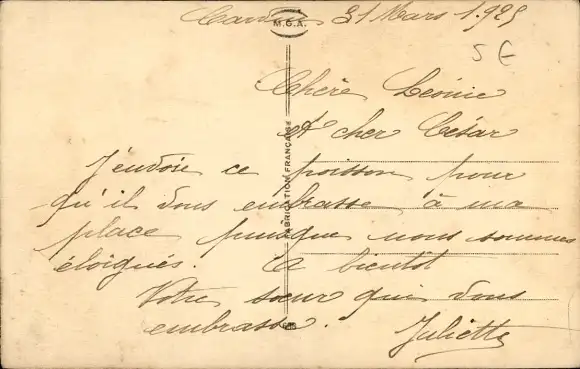 31 Mars 1925
M.G.A.
5 €
Chère Léonie
et cher César
J'envoie ce poisson pour
qu'il vous embrasse à ma
place puisque nous sommes
éloignés. A bientôt
Votre sœur qui vous
embrasse.
Juliette
FABRICATION FRANÇAISE